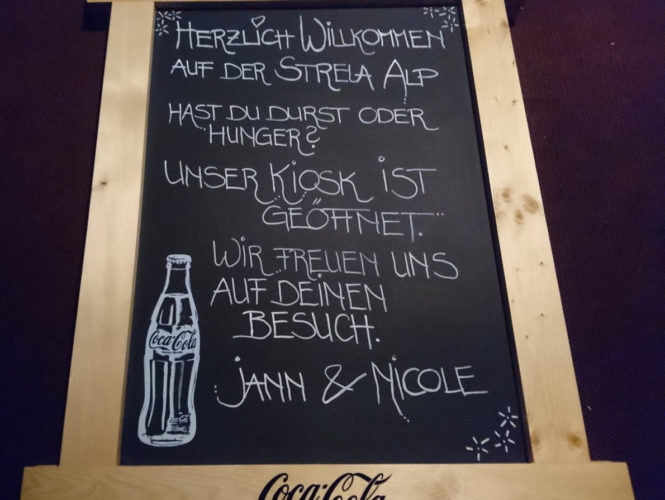 HERZLICH WILLKOMMEN
AUF DER STRELA ALP
HAST DU DURST ODER
HUNGER?
UNSER KIOSK IST
GEÖFFNET.
WIR FREUEN UNS
AUF DEINEN
BESUCH.
Coca-Cola
JANN & NICOLE
Coca-Cola